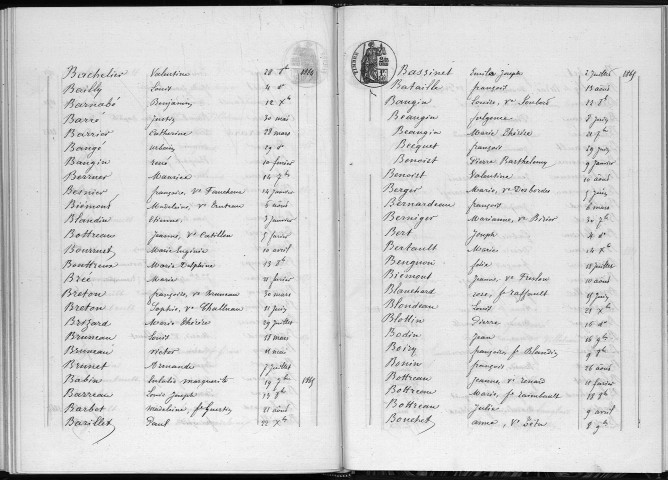 Bachelier Valentine 28 8e 1864
Bailly Louis 4 de
Barnabé Benjamin 12 Xe
Barré Justin 30 mai
Barrier Catherine 28 mars
Baugé Urbain 29 de
Baugin René 10 février
Bernier Maurice 14 7e
Besnier françoise, Ve 14 Janvier
Biémont Madeleine, Ve 6 août
Blandin Etienne 3 Janvier
Bottreau Jeanne, Ve Catillon 5 février
Bourmet Marie Eugénie 10 avril
Marie Delphine 13 8e
Brée Marie 21 février
Breton françoise, Ve Bruneau 30 mars
Breton Sophie, Ve 21 Juin
Brizard Marie Thérèse 29 Juillet
Bruneau Louis 18 mars
Bruneau Victor 11 mai
Brunet Armande 7 Juillet
Babin marguerite 19 7e 1865
Barreau Louis Joseph 13 8e
Barbot Madeleine, fe 21 août
Barillet Paul 22 Xe
TIMBRE
Bassinet Emile Joseph 2 Juillet 1865
Bataille françois 13 août
Baugin Louise, Ve 13 8e
Beaugin fulgence 8 Juin
Beaugin Marie Thérèse 21 7e
Becquet françois 29 Juin
Benoist Pierre Barthelemy 9 Janvier
Benoist Valentine 10 août
Berger Marie, Ve Desbordes 5 Juin
Bernardeau françois 6 mars
Berniger Marianne, Ve 30 7e
Bert Joseph 4 de
Bertault Marie 14 Xe
Julie 18 Juillet
Biémont Jeanne, Ve 10 août
Blanchard rose, fe raffault 15 Juin
Blondeau Louis 21 Xe
Blottin Pierre 16 de
Bodin Jean 16 9e
Boizy françoise, fe Blandin 9 8e
Bonin françois 26 août
Bottreau Jeanne, Ve renard 11 février
Bottreau Marie, fe raimbault 18 8e
Bottreau Julie 9 avril
Bouchet anne, Ve 8 9e